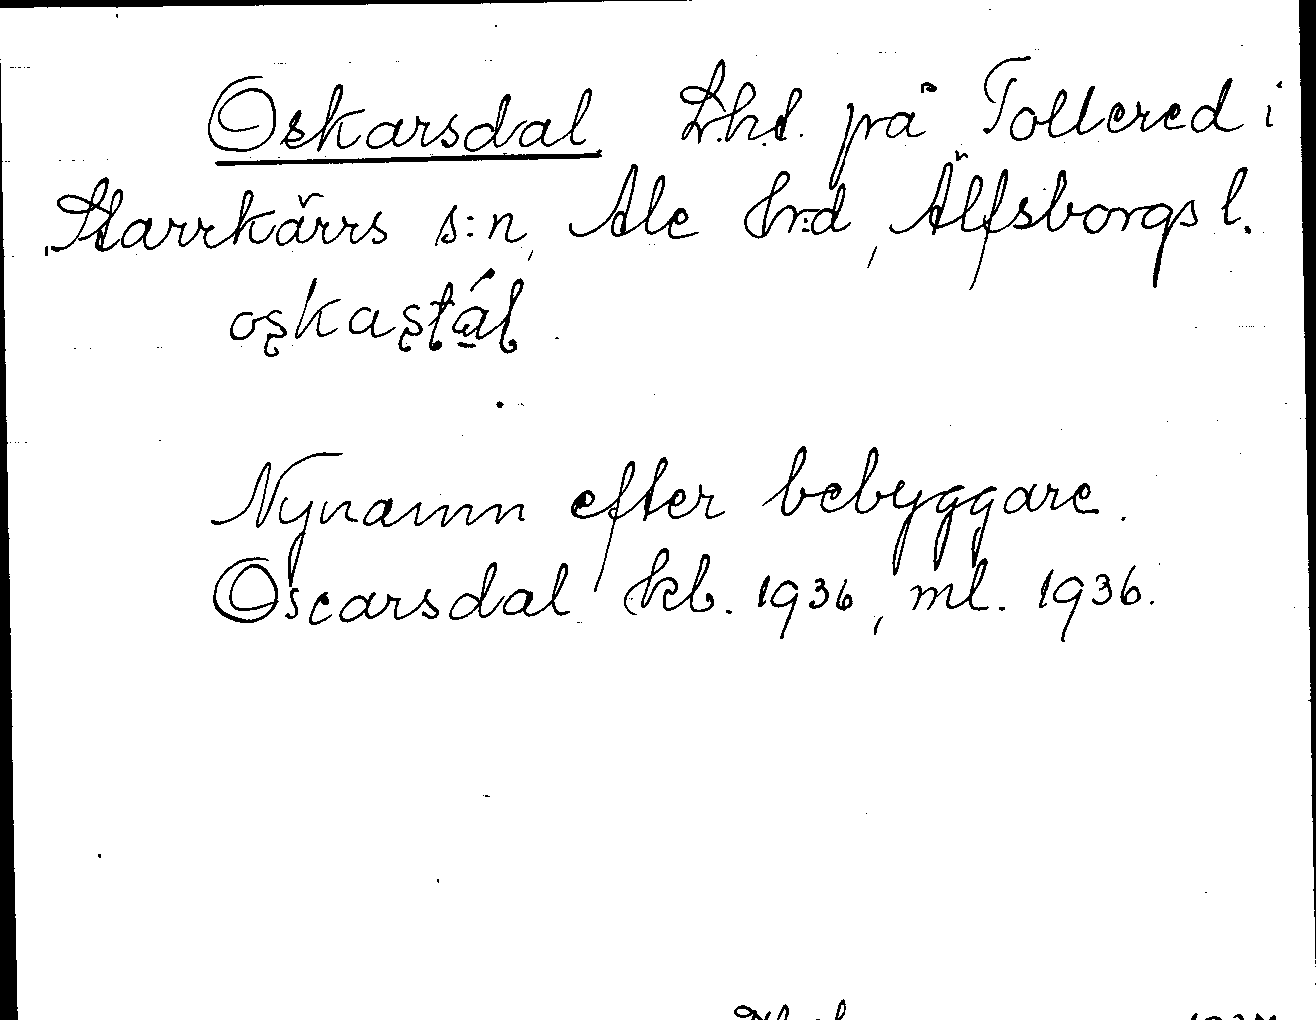 Oskarsdal. L.h.t. på Tollered i
Starrkärrs s:n, Ale hrd, Älfsborgs l.
oskastál
Nynamn efter bebyggare.
Oscarsdal kb. 1936, ml. 1936.